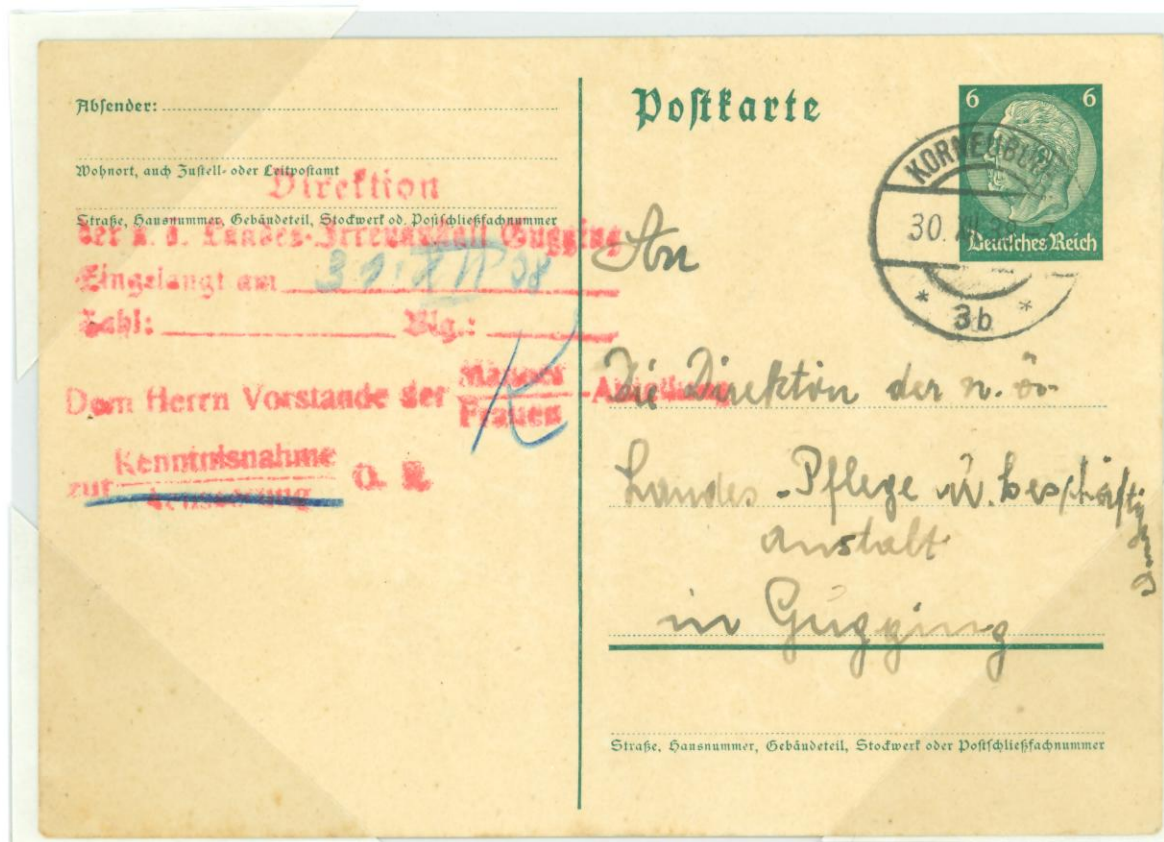 Absender:
Wohnort, auch Zustell- oder Leitpostamt
Straße, Hausnummer, Gebäudeteil, Stockwerk od. Postschließfachnummer
Direktion
der n. ö. Landes-Irrenanstalt Gugging
Eingelangt am 31. XII 38
Zahl: Blg.:
Dem Herrn Vorstande der Männer
Frauen -Abteilung
zur Kenntnisnahme
Äusserung G. R.
K
Postkarte
6 6
Deutsches Reich
KORNEUBURG
30. XII. 38
* 3b *
An
Die Direktion der n. ö.
Landes-Pflege u. beschäftigungs
anstalt
in Gugging
Straße, Hausnummer, Gebäudeteil, Stockwerk oder Postschließfachnummer